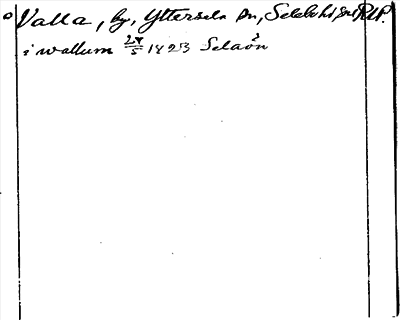 Valla, by, Ytterselö sn, Selebo hd, Södml. RAP.
i wallum 27/5 1423 Selaön